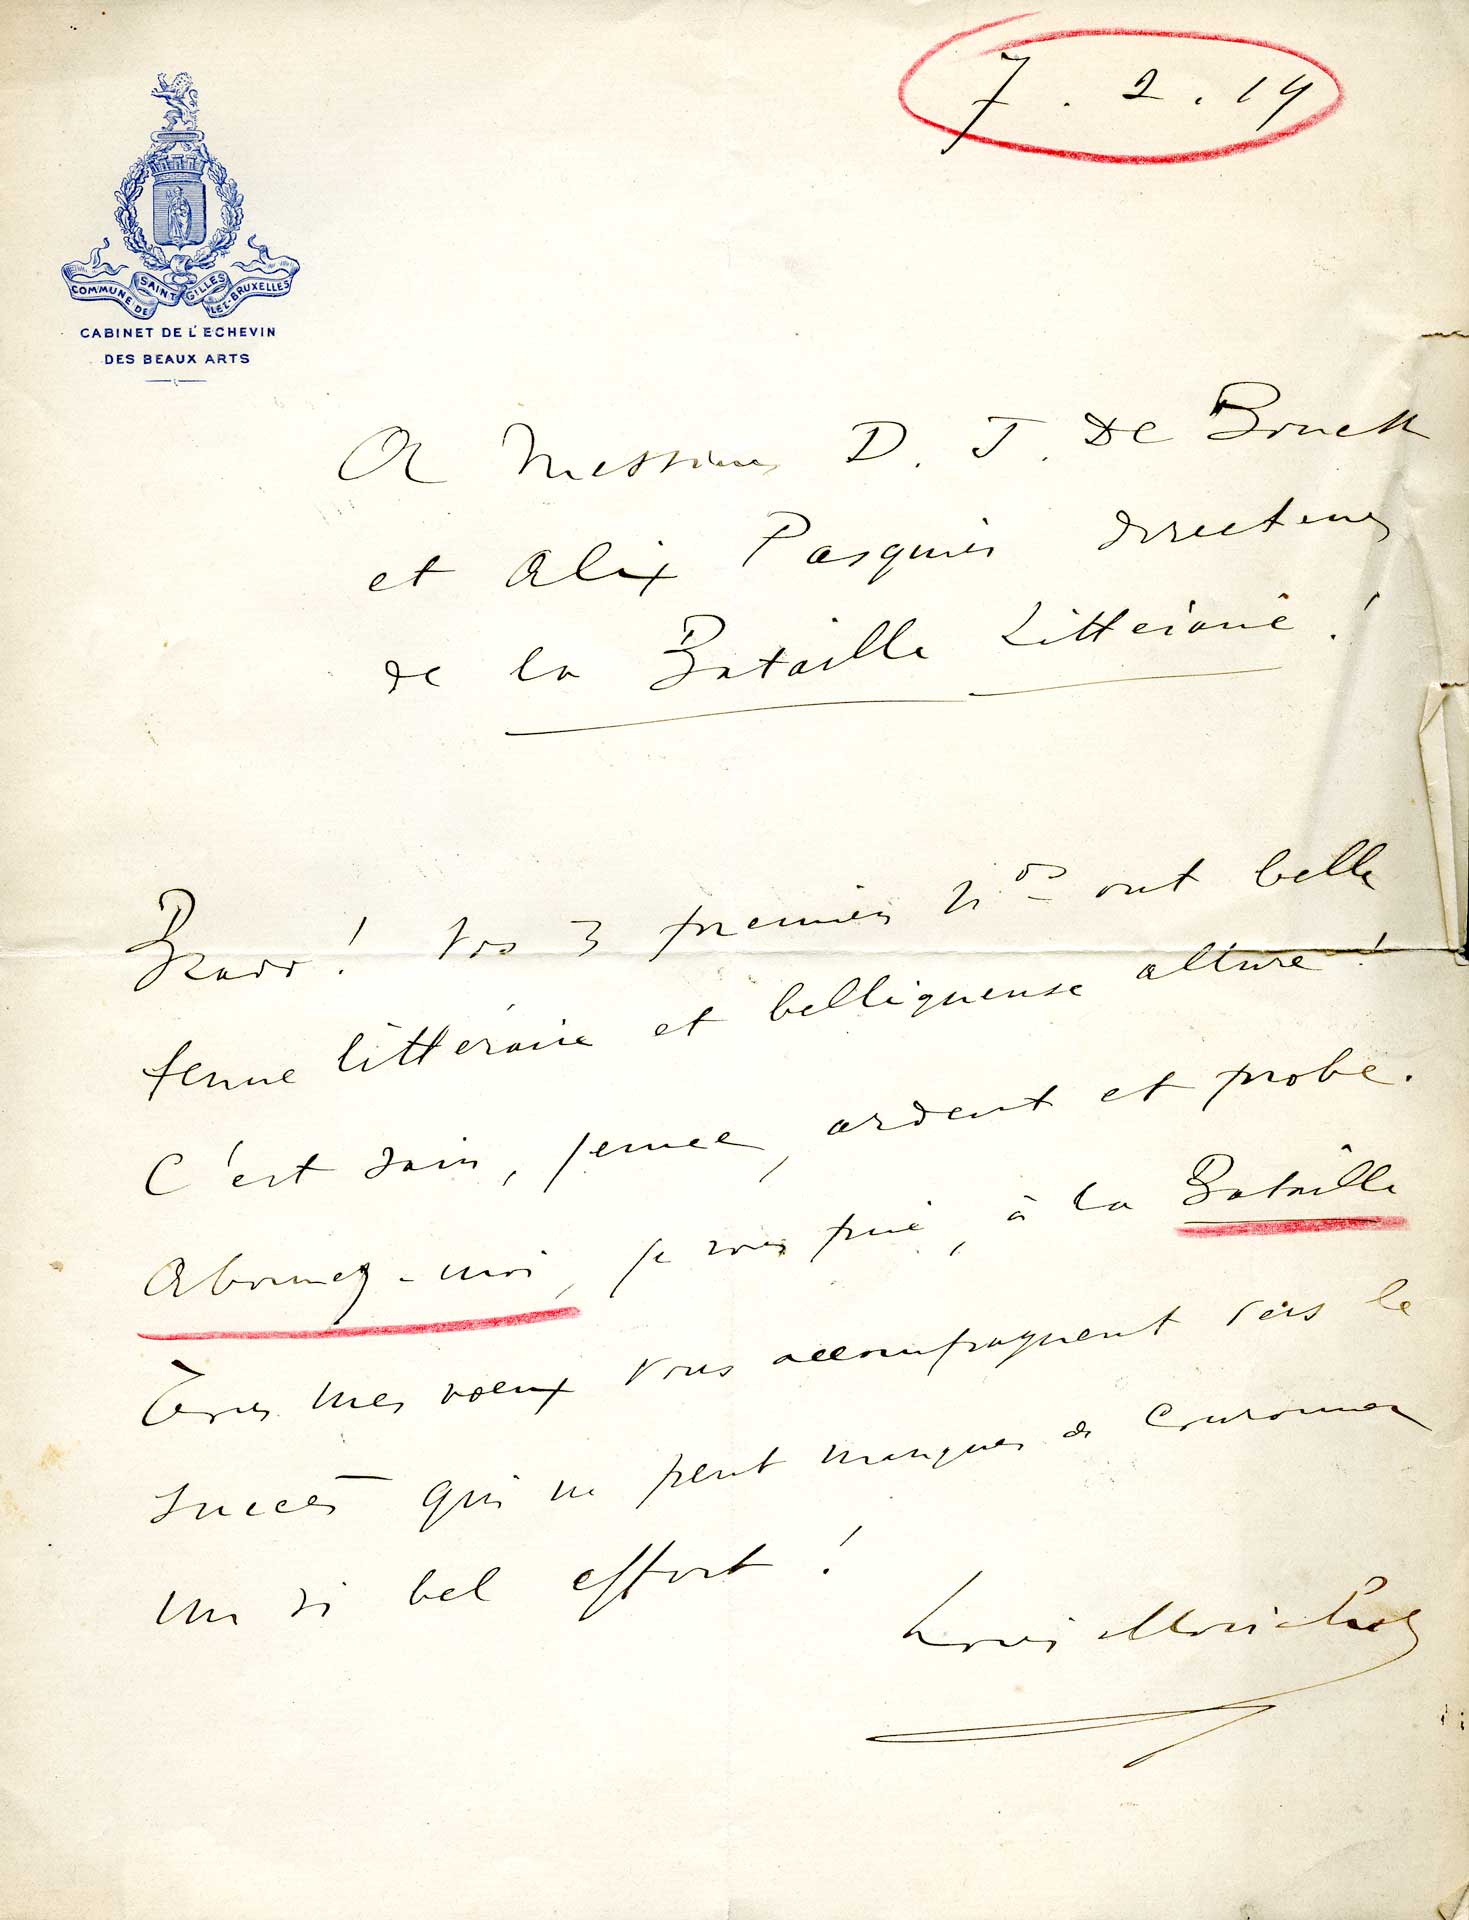 7 . 2 . 19
COMMUNE DE SAINT GILLES LEZ-BRUXELLES
CABINET DE L'ECHEVIN
DES BEAUX ARTS
A Messieurs D. J. De Bouck
et Alix Pasquier directeurs
de la Bataille Littéraire !
Bravo ! Vos 3 premiers Nos ont belle
tenue littéraire et belliqueuse allure !
C'est sain, jeune, ardent et probe.
Abonnez-moi, je vous prie, à la Bataille
Tous mes voeux vous accompagnent vers le
succès qui ne peut manquer de couronner
un si bel effort !
Louis Morichar